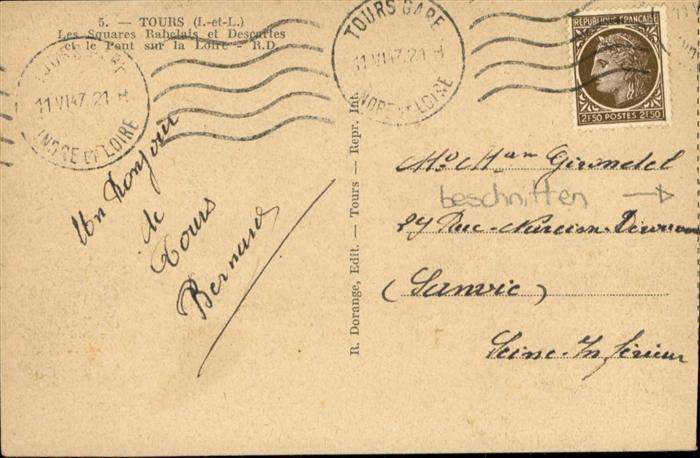 5. — TOURS (I.-et-L.)
Les Squares Rabelais et Descartes
et le Pont sur la Loire - R.D.
TOURS GARE
11 VI 47. 21 H
INDRE ET LOIRE
TOURS GARE
11 VI 47. 21 H
INDRE ET LOIRE
REPUBLIQUE FRANÇAISE
2F50 POSTES 2F50
Un Bonjour
de
Tours
Bernard
R. Dorange, Edit. — Tours — Repr. Int.
Girondel
beschnitten →
27 Rue
(Sanvic)
Seine-Inférieur